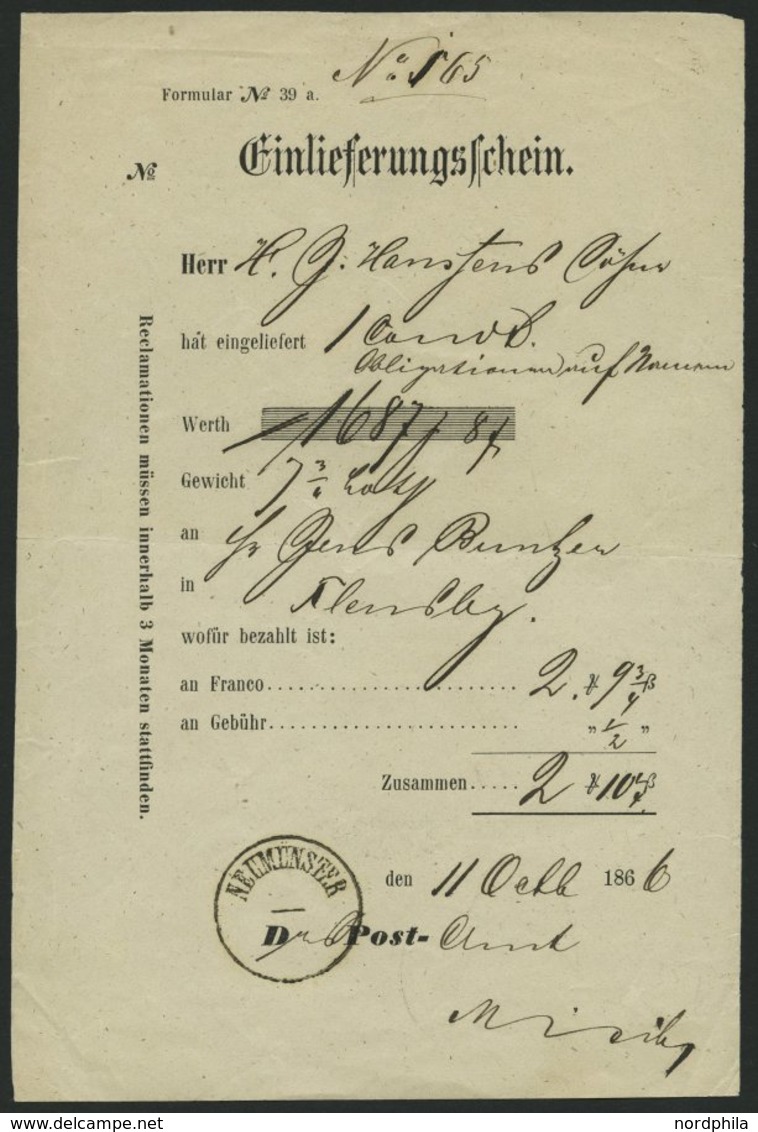 No 165
Formular No 39 a.
Einlieferungsschein.
No
Herr H. G. Hanssens Söhne
hat eingeliefert 1 Convt.
Obligationen auf Namen
Werth 1687 / 8
Gewicht 7 3/4 Loth
an Hr Jens Buntzen
in Flensbg.
wofür bezahlt ist:
an Franco 2. ₰ 9 3/4 β
an Gebühr „ 1/2 „
Zusammen 2 10
NEUMÜNSTER
den 11 Octb 1866
Das Post-Amt
Reclamationen müssen innerhalb 3 Monaten stattfinden.
www.delcampe.net
nordphila